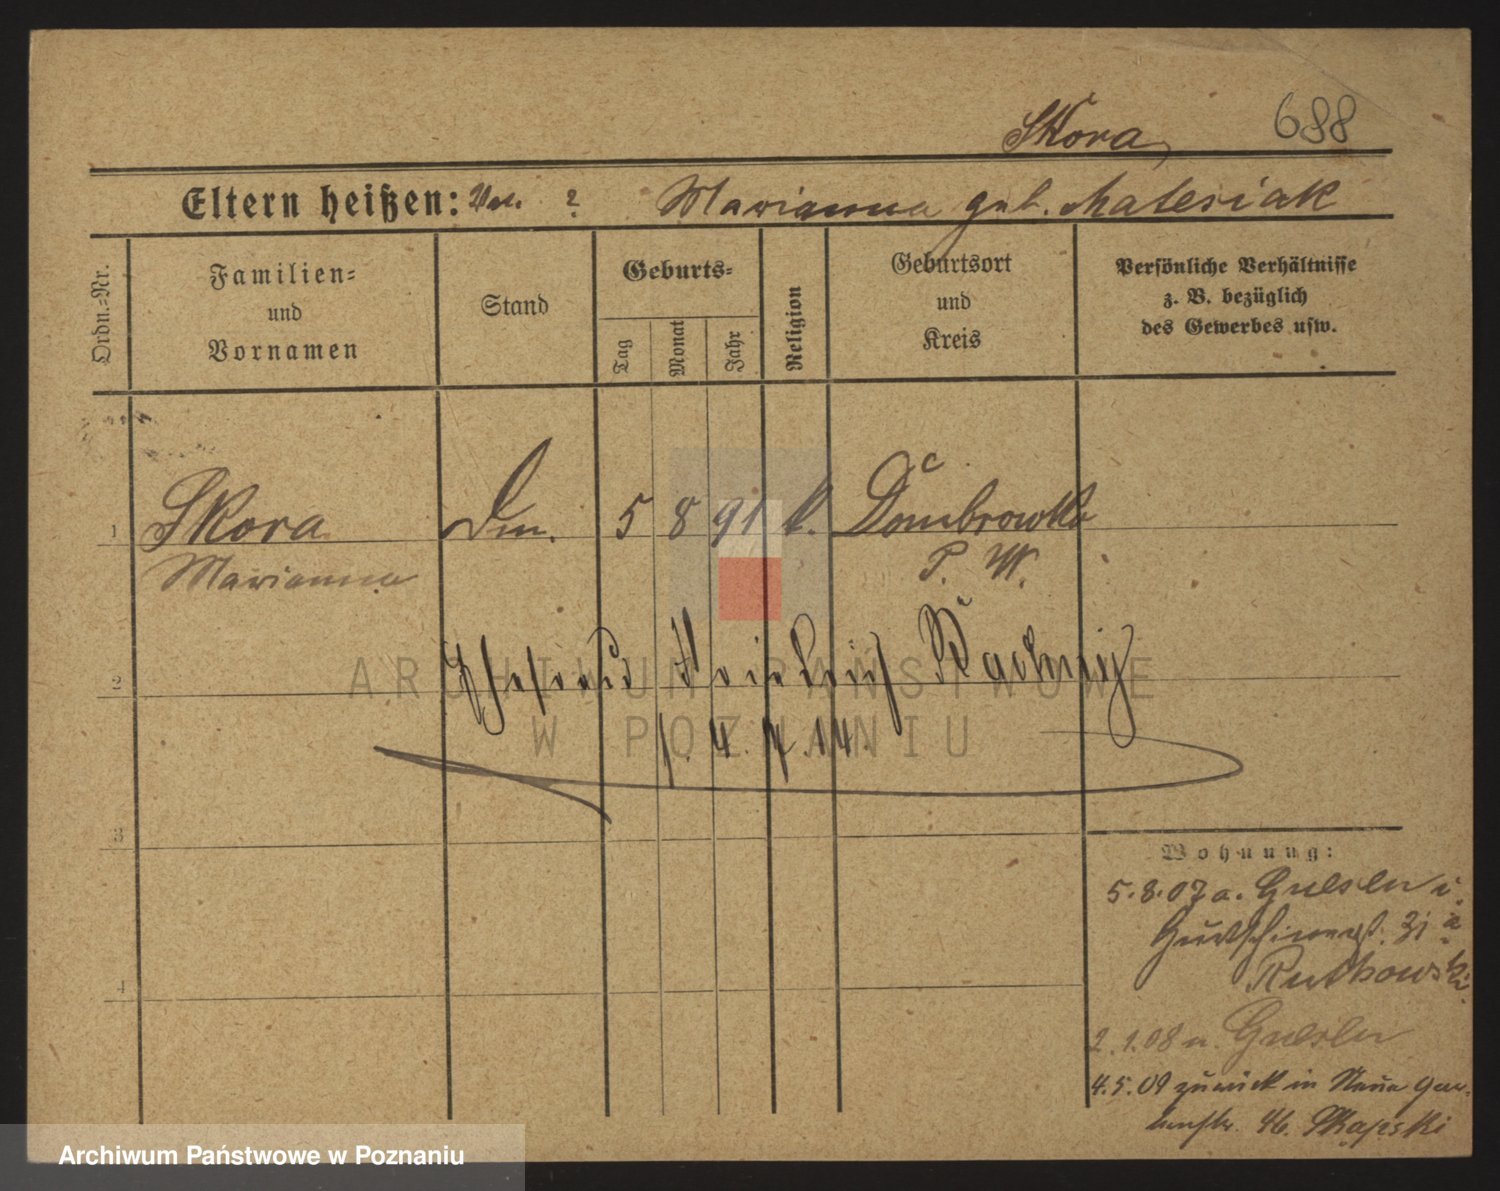 Skora, 688
Eltern heißen: Vat. ? Marianna geb. Matesiak
Ordn.=Nr.
Familien=
und
Vornamen
Stand
Geburts=
Tag
Monat
Jahr
Religion
Geburtsort
und
Kreis
Persönliche Verhältnisse
z. B. bezüglich
des Gewerbes usw.
1 Skora Dm. 5 8 91 k. Dombrowka
Marianna P. W.
2 Ehefrau Radny
1. 4. 14.
3
Wohnung:
5.8.07 a. Gulsln i.
31
Rutkowski
4
2.1.08 n. Gulsln
4.5.09 zurück in Neue Gar-
tenstr. 46. Skapski
ARCHIWUM PAŃSTWOWE
W POZNANIU
Archiwum Państwowe w Poznaniu